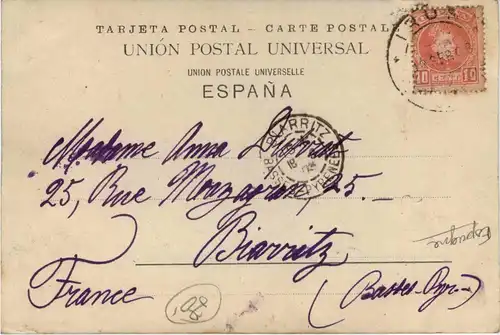 TARJETA POSTAL - CARTE POSTALE
UNIÓN POSTAL UNIVERSAL
UNION POSTALE UNIVERSELLE
ESPAÑA
10 CENT. 10
BIARRITZ
18
BSES PYRENEES
Madame Anna
25, Rue Mazagran, 25.
Biarritz
France (Basses-Pyr.)
Espagne